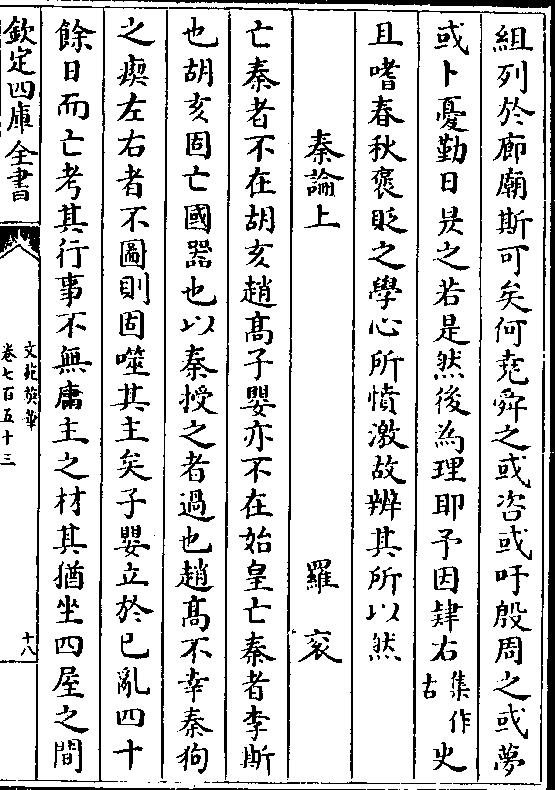 組列於廊廟斯可矣何堯舜之或咨或吁殷周之或夢
或卜憂勤日昃之若是然後為理耶予因肄右集作古史
且嗜春秋褒貶之學心所憤激故辨其所以然
秦論上 羅衮
亡秦者不在胡亥趙髙子嬰亦不在始皇亡秦者李斯
也胡亥固亡國器也以秦授之者過也趙髙不幸秦狗
之瘈左右者不圖則固噬其主矣子嬰立於已亂四十
餘日而亡考其行事不無庸主之材其猶坐四屋之間
欽定四庫全書
文苑英華
卷七百五十三
十八